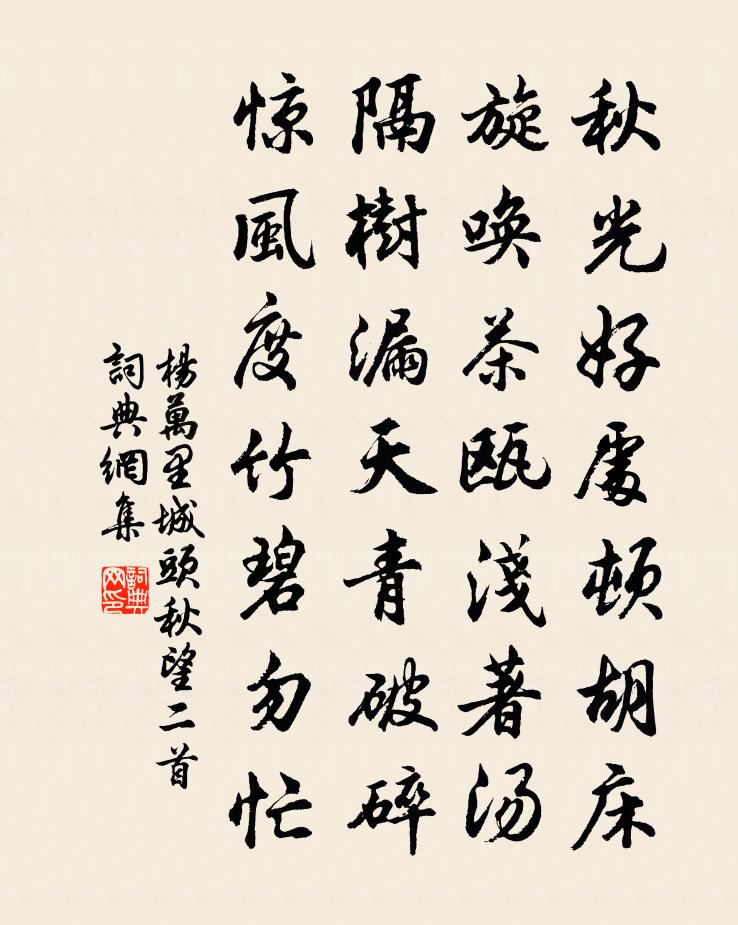 秋光好處頓胡床
旋唤茶瓯淺著汤
隔樹漏天青破碎
惊風度竹碧勿忙
楊萬里城頭秋望二首
詞典網集
詞典网印